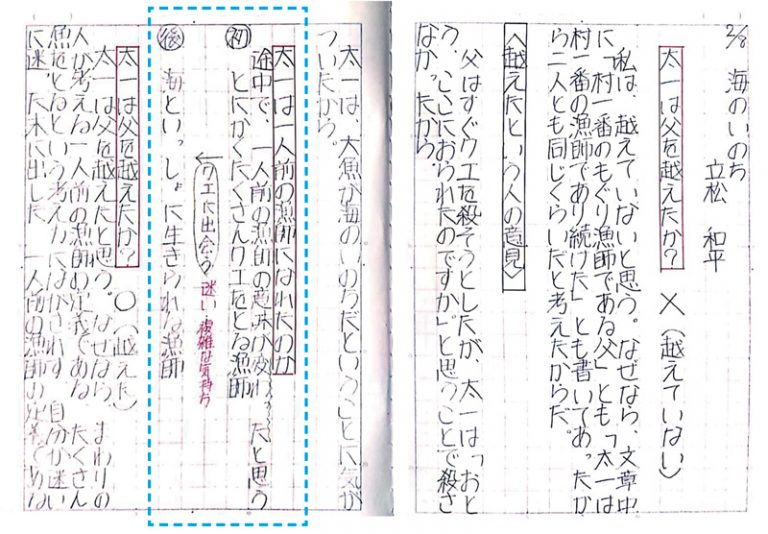 2/8 海のいのち
立松 和平
太一は父を越えたか？ ×（越えていない）
私は、越えていないと思う。なぜなら、文章中
に「村一番のもぐり漁師である父」とも「太一は
村一番の漁師であり続けた」とも書いてあったか
ら二人とも同じくらいだと考えたからだ。
〈越えたという人の意見〉
父はすぐクエを殺そうとしたが、太一は「おと
う、ここにおられたのですか」と思うことで殺さ
なかったから。
太一は、大魚が海のいのちだということに気が
ついたから。
太一は一人前の漁師になれたのか
途中で、一人前の漁師の意味が変わっただと思う
初 とにかくたくさんクエをとる漁師
クエに出会う 迷い 複雑な気持ち
後 海といっしょに生きられる漁師
太一は父を越えたか？ ○（越えた）
太一は父を越えたと思う。なぜなら、まわりの
人が考える一人前の漁師の定義である たくさん
魚をとるという考え方にながされず、自分が迷い
に迷った末に出した 一人前の漁師の定義である